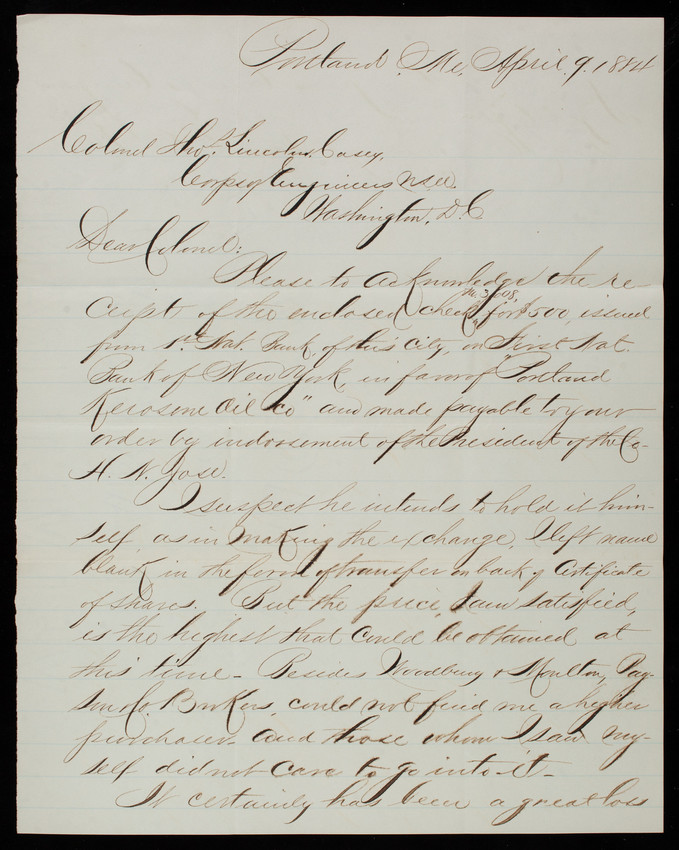 Portland, Me, April. 9. 1884
Colonel Thos. Lincoln Casey,
Corps of Engineers USA.
Washington, D.C
Dear Colonel:
Please to acknowledge the re-
ceipt of the enclosed check for $500, issued
from 1st Nat. Bank, of this city, on First Nat.
Bank of New York, in favor of "Portland
Kerosene Oil Co" and made payable to your
order by indorsement of the President of the Co-
H. N. Jose.
I suspect he intends to hold it him-
self as in making the exchange, I left name
blank in the form of transfer on back of Certificate
of shares. But the price, I am satisfied,
is the highest that could be obtained at
this time - Besides Woodbury & Moulton, Pay-
son Co. Brokers, could not find me a higher
purchaser - and those whom I saw my-
self did not care to go into it -
It certainly has been a great loss